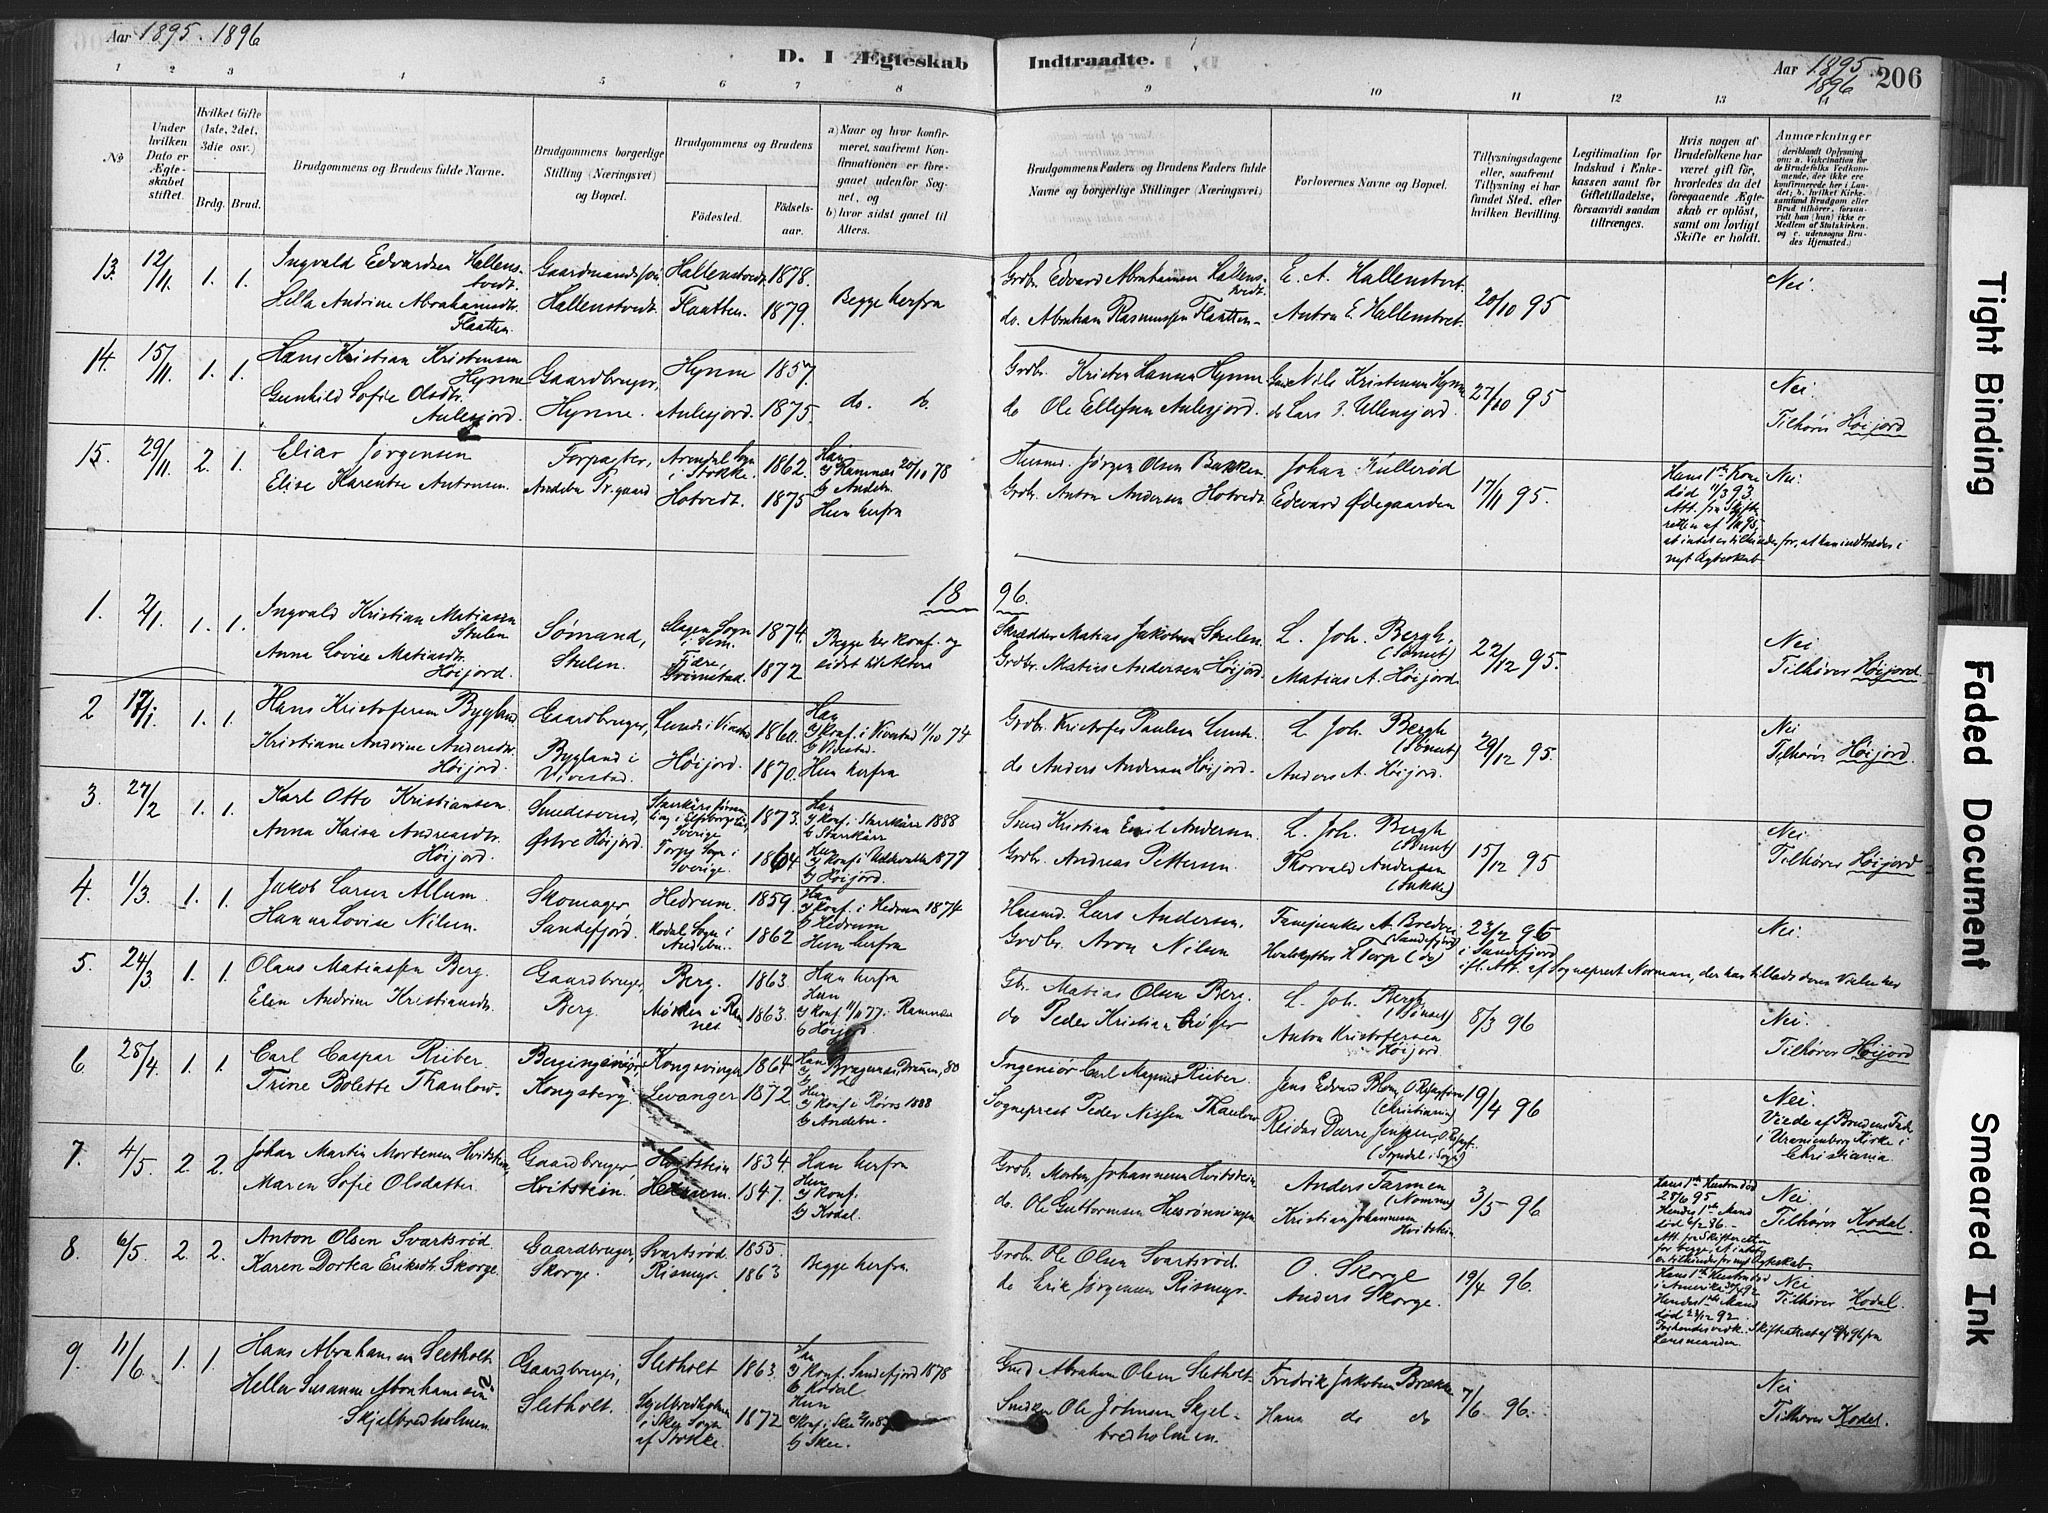 Aar 1895. 1896
D. I Ægteskab Indtraadte.
Aar 1895
1896
206
1 2 3 4 5 6 7 8 9 10 11 12 13 14
No
Under hvilken Dato er Ægteskabet stiftet.
Hvilket Gifte (1ste, 2det, 3die osv.)
Brdg. Brud.
Brudgommens og Brudens fulde Navne.
Brudgommens borgerlige Stilling (Næringsvei) og Bopæl.
Brudgommens og Brudens
Födested.
Födselsaar.
a) Naar og hvor konfirmeret, saafremt Konfirmationen er foregaaet udenfor Sognet, og
b) hvor sidst gaaet til Alters.
Brudgommens Faders og Brudens Faders fulde Navne og borgerlige Stillinger (Næringsvei)
Forlovernes Navne og Bopæl.
Tillysningsdagene eller, saafremt Tillysning ei har fundet Sted, efter hvilken Bevilling.
Legitimation for Indskud i Enkekassen samt for Giftetilladelse, forsaavidt saadan tiltrænges.
Hvis nogen af Brudefolkene har været gift før, hvorledes da det foregaaende Ægteskab er oplöst, samt om lovligt Skifte er holdt.
Anmærkninger
(deriblandt Oplysning om: a. Vakcination for de Brudefolks Vedkommende, der ikke ere konfirmerede her i Landet; b. hvilket Kirkesamfund Brudgom eller Brud tilhörer, forsaavidt han (hun) ikke er Medlem af Statskirken, og c. udensogns Brudes Hjemsted.)
13. 12/11 1. 1. Ingvald Edvardsen Hallenstvedt. Gaardmandssøn Hallenstvedt 1878.
Hella Andrine Abrahamsdtr. Flaatten. Hallenstvedt. Flaatten. 1879. Begge herfra
Grdbr. Edvard Abrahamsen Hallenstvedt. E. A. Hallenstvet. 20/10 95 Nei.
do. Abraham Rasmussen Flaatten Anton E. Hallenstvet.
14. 15/11 1. 1. Hans Kristian Kristensen Hynne Gaardbruger, Hynne 1857.
Gunhild Sofie Olsdtr. Aulesjord. Hynne. Aulesjord. 1875. do. do.
Grdbr. Krister Hansen Hynne Nils Kristensen Hynne 27/10 95 Nei
do Ole Ellefsen Aulesjord. Lars J. Ullensjord. Tilhører Høijord
15. 29/11 2. 1. Elias Jørgensen Forpagter, Arendal Sogn i Stokke. 1862. Han
Elise Karentse Antonsen. Andebu Pr. gaard Hotvedt. 1875 a) Ramnæs 20/10 78
b) Andebu.
Hun herfra
Husmd. Jørgen Olsen Bakken. Johan Kullerød 17/11 95. Nei.
Grdbr. Anton Andersen Hotvedt. Edevard Ødegaarden
Hans 1ste Kone død 11/3 93. Att. fra Skifteretten af 95, at intet er tilhinder for, at han indtræder i nyt Ægteskab
1896.
1. 2/1. 1. 1. Ingvald Kristian Matiassen Stulen Sømand, Slagen Sogn i Sem. 1874.
Anna Lovise Matiasdtr. Høijord. Stulen. Fjære, Grimstad. 1872 Begge her konf. og sidst til Alters
Skrædder Matias Jakobsen Stulen. L. Joh. Bergh, 22/12 95. Nei
Grdbr. Matias Andersen Høijord. Matias A. Høijord. Tilhører Høijord
2 17/1. 1. 1. Hans Kristofersen Bygland Gaardbruger, Lund i Vivestad 1860. Han
Kristiane Andrine Andersdtr. Høijord. Bygland i Vivestad. Høijord. 1870. a) Konf. i Vivestad 11/10 74
b) Vivestad.
Hun herfra
Grdbr. Kristofer Paulsen Lund. L. Joh. Bergh 29/12 95. Nei
do Anders Andersen Høijord. Anders A. Høijord. Tilhører Høijord.
3. 27/2 1. 1. Karl Otto Kristiansen Smedesvend, 1873. Han
Anna Kaisa Andreasdtr. Høijord. Østre Høijord. Torps Sogn i Sverige. 1864 a) Konf. i Starrkärr 1888
b) Starrkärr
Hun
a) Konf. i 1877
b) Høijord.
Smd Kristian Emil Andersen. L. Joh. Bergh 15/12 95 Nei
Grdbr. Andreas Pettersen Thorvald Andersen Tilhører Høijord
4. 1/3. 1. 1. Jakob Larsen Allum. Skomager Hedrum. 1859. Han
Hanna Lovise Nilsen. Sandefjord. Kodal Sogn i Andebu. 1862 a) Konf. i Hedrum 1874
b) Hedrum
Hun herfra
Husmd. Lars Andersen. A. Bredvei (Sandefjord) 23/2 96 Nei.
Grdbr. Aron Nilsen H. Torp (do) i Sandefjord
ifl. Att. af Sogneprest Norman, der har tilladt deres Vielse her
5. 24/3 1. 1. Olaus Matiassen Berg. Gaardbruger, Berg. 1863. Han herfra
Elen Andrine Kristiansdtr. Berg. Mørken i Ramnes 1863. Hun
a) Konf 11/11 77 i Ramnæs
b) Høijord
Gb. Matias Olsen Berg. L. Joh. Bergh 8/3 96 Nei.
do Peder Kristian Anton Kristofersen Høijord. Tilhører Høijord
6. 28/4. 1. 1. Carl Caspar Riiber. Bergingeniør Kongsvinger 1864 Han
Trine Bolette Thaulow. Kongsberg. Levanger 1872. a) Bragernes, Drmen, 80
Hun
a) Konf. i Røros 1888
b) Andebu.
Ingeniør Carl Magnus Riiber. Jens Edvard (Christiania) 19/4 96 Nei.
Sogneprest Peder Nissen Thaulow Reidar Darre Jenssen Viede af Brudens Fader i Uranienborg Kirke i Christiania.
7. 4/5. 2. 2. Johan Martin Mortensen Hvitstein Gaardbruger Hvitstein 1834. Han herfra
Maren Sofie Olsdatter. Hvitstein. Hedrum. 1847. Hun
a) Konf.
b) Kodal.
Grdbr. Morten Johannesen Hvitstein. Anders Tarmen 3/5 96 Nei
do. Ole Guttormsen Hesrønningen Kristian Johannesen Hvitstein. Tilhører Kodal.
Hans 1ste Hustru død 28/6 95
Hendes 1ste Mand død 6/2 86.
Att. fra Skifteretten for begge, at intet er tilhinder for nyt Ægteskab.
8. 6/5. 2. 2. Anton Olsen Svartsrød. Gaardbruger, Svartsrød. 1855.
Karen Dortea Eriksdtr. Skorge. Skorge. Rismyr. 1863 Begge herfra.
Grdbr. Ole Olsen Svartsrød. O. Skorge 19/4 96. Nei
do Erik Jørgensen Rismyr. Anders Skorge. Tilhører Kodal.
Hans 1ste Hustru død i Amerika 92
Hendes 1ste Mand død 23/12 92.
9. 11/6. 1. 1. Hans Abrahamsen Sletholt Gaardbruger, Sletholt 1863. Han
Helle Susanne Abrahamsen Skjelbredholmen. Sletholt. Skjelbredholmen i Skee Sogn af Stokke. 1872 a) Konf. Sandefjord 1878
b) Kodal
Hun
a) Konf. i Skee 87
b) Skee.
Gmd Abraham Olsen Sletholt Fredrik Jakobsen Brække 7/6 96. Nei
Snedker Ole Johnsen Skjelbredholmen. Hans do do Tilhører Kodal.
Tight Binding
Faded Document
Smeared Ink